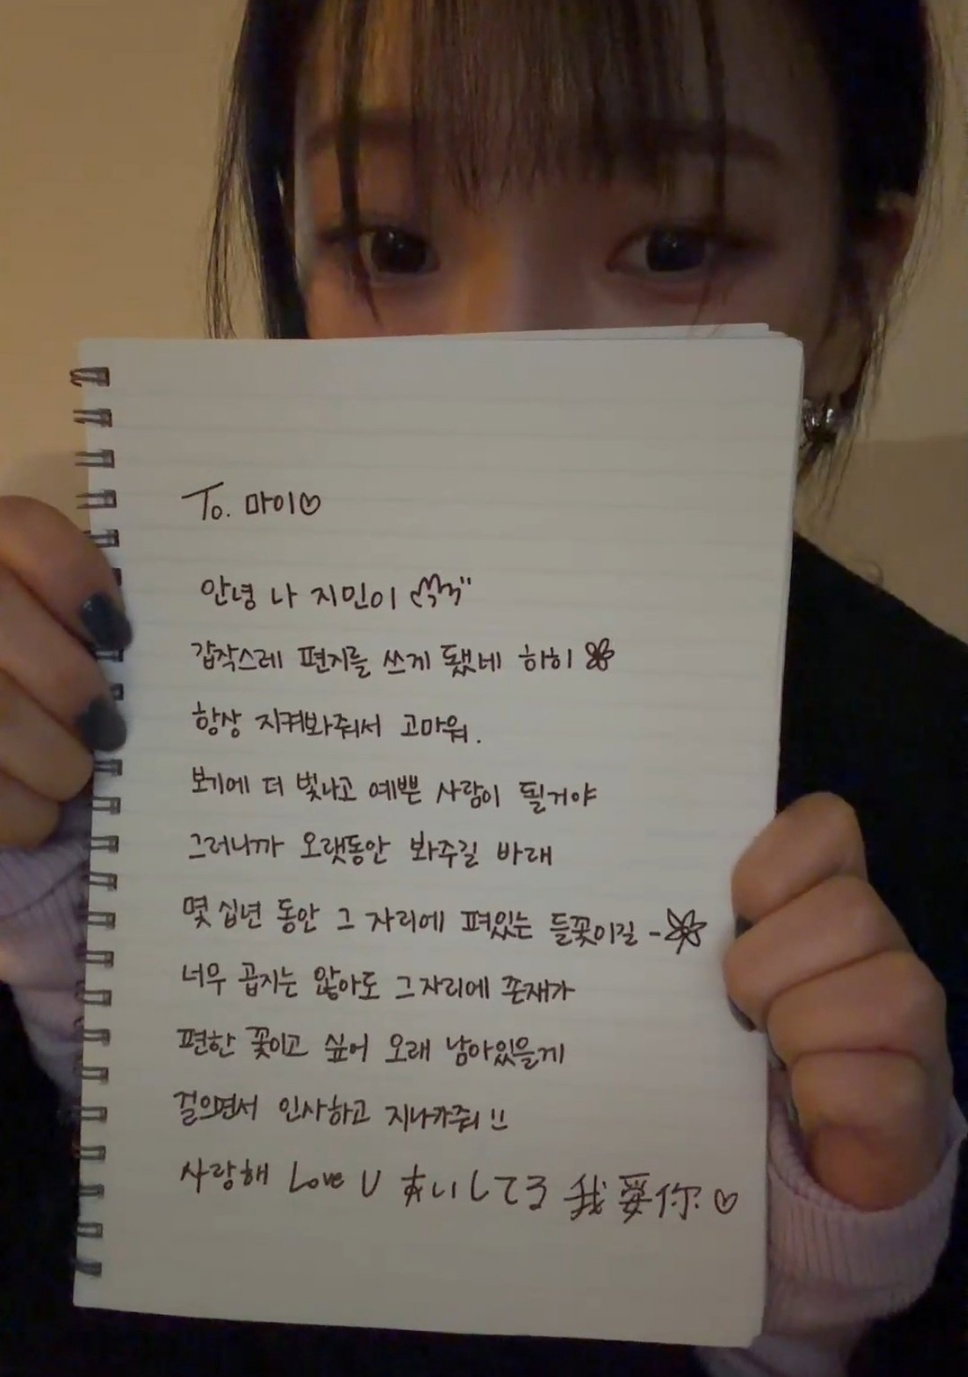 To. 마이♡
안녕 나 지민이
갑작스레 편지를 쓰게 됐네 히히
항상 지켜봐줘서 고마워.
보기에 더 빛나고 예쁜 사람이 될거야
그러니까 오랫동안 봐주길 바래
몇 십년 동안 그 자리에 펴있는 들꽃이길 -
너무 곱지는 않아도 그자리에 존재가
편한 꽃이고 싶어 오래 남아있을게
걸으면서 인사하고 지나가줘 !!
사랑해 Love U あいしてる 我愛你 ♡